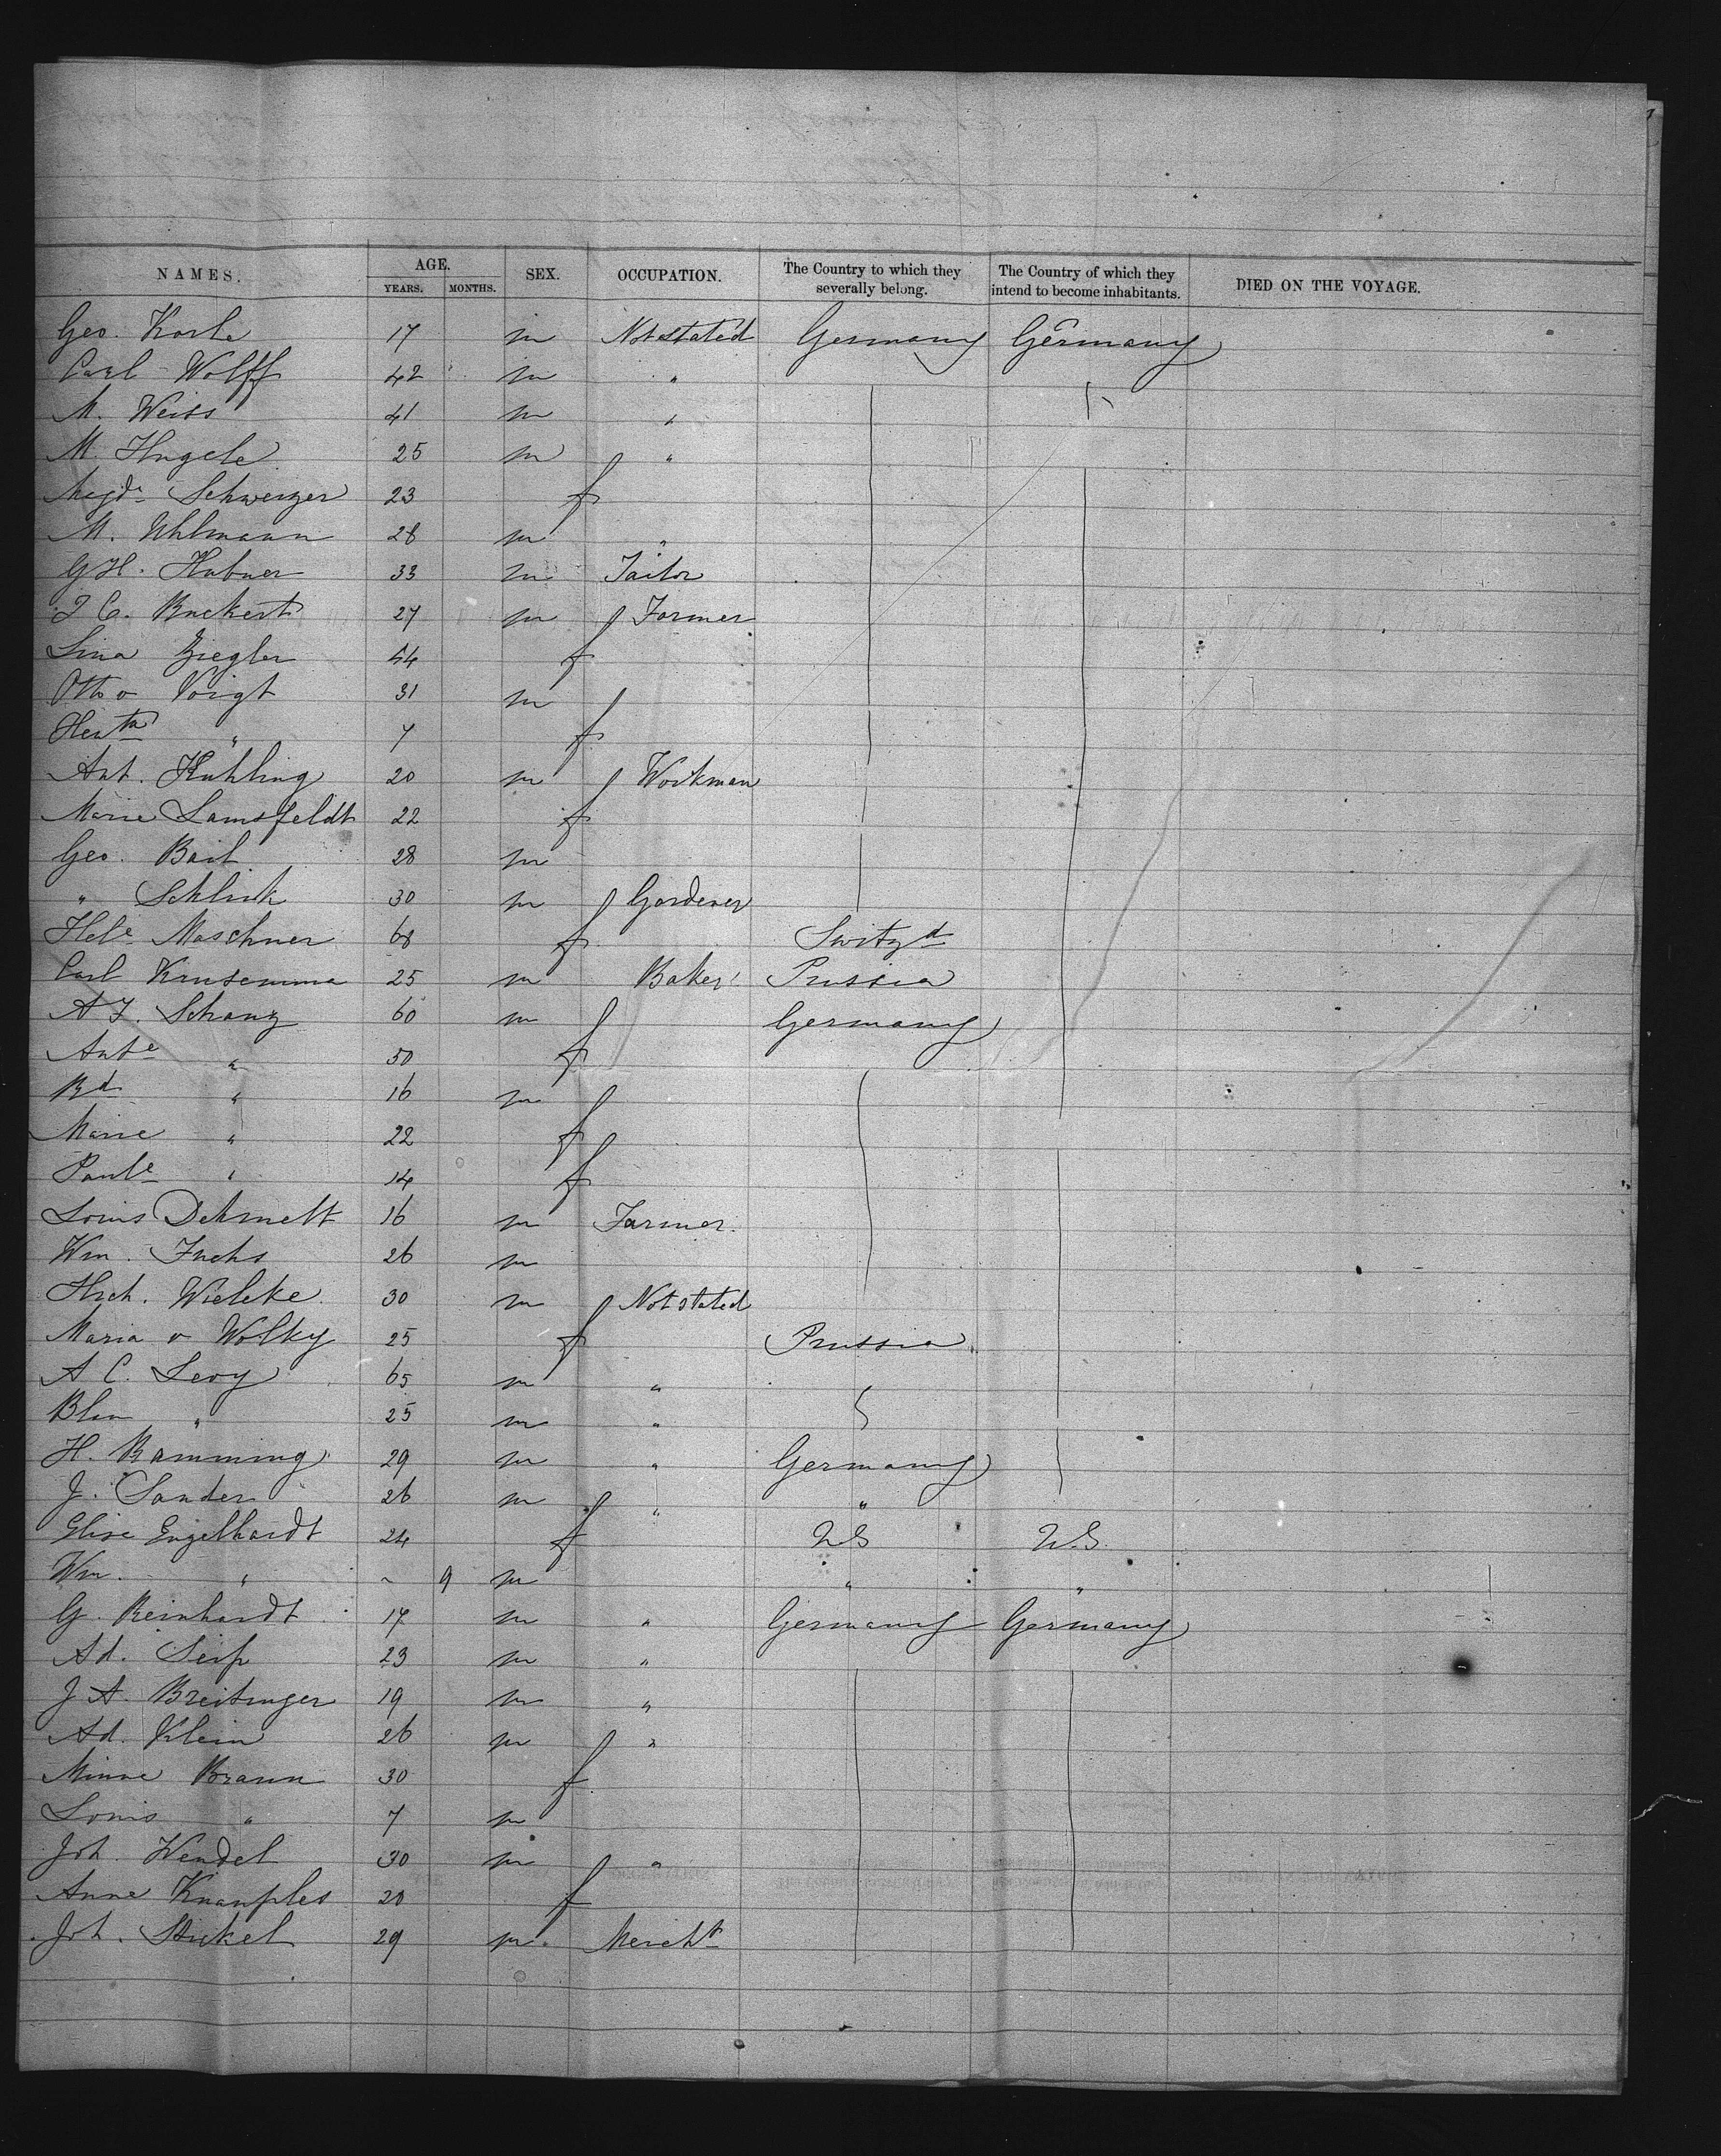 NAMES. AGE. SEX. OCCUPATION. The Country to which they severally belong. The Country of which they intend to become inhabitants. DIED ON THE VOYAGE.
YEARS. MONTHS.
Geo. Karle 17 m Not stated Germany Germany
Carl Wolff 42 m "
M. Weiss 41 m "
M. Hugele 25 m "
Magde Schweizer 23 f
M. Uhlmann 28 m "
G H. Hubner 33 m Tailor
J C. Ruckert 27 m Farmer
Lina Ziegler 54 f
Otto Voigt 31 m
" 7 f
Ant. Kuhling 20 m Workman
Marie Lamsfeldt 22 f
Geo. Bail 28 m
" Schlink 30 m Gardener
Hele Maschner 68 f Switzd
Carl Krusemma 25 m Baker Prussia
A F. Schanz 60 m Germany
Ante " 50 f
Rd " 16 m
Marie " 22 f
Paule " 14 f
Louis Dehmelt 16 m Farmer.
Wm. Fuchs 26 m
Hrch. Wielcke 30 m Not stated
Maria v Wolky 25 f Prussia
A C. Levy 65 m "
" 25 m "
H. Ramming 29 m " Germany
J. Sander 26 m " "
Elise Engelhardt 24 f U S U.S.
Wm. " ~ 9 m " "
G. Reinhardt 17 m " Germany Germany
Ad. Seip 23 m "
J A. Breitinger 19 m "
Ad. Klein 26 m "
Minna Braun 30 f
Louis " 7 m
Joh. Wendel 30 m "
Anne 20 f
Joh. Stickel 29 m Mercht